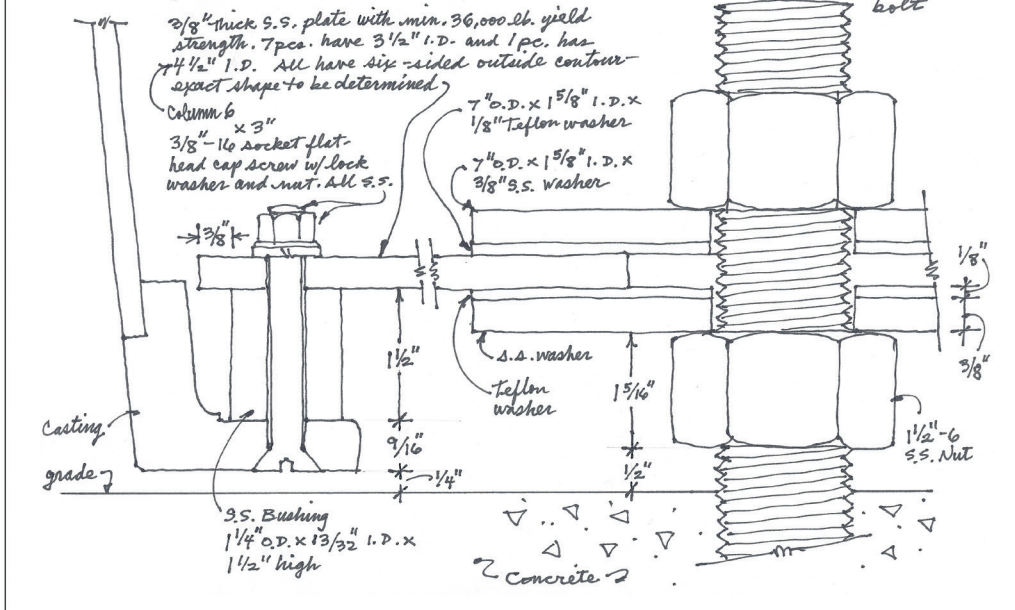 3/8" thick S.S. plate with min. 36,000 lb. yield
strength. 7pcs. have 3 1/2" I.D. and 1 pc. has
4 1/2" I.D. All have six-sided outside contour-
exact shape to be determined
Column 6
x 3"
3/8"-16 socket flat-
head cap screw w/lock
washer and nut. All S.S.
bolt
7" O.D. x 1 5/8" I.D. x
1/8" Teflon washer
7" O.D. x 1 5/8" I.D. x
3/8" S.S. washer
3/8"
1/8"
3/8"
1 1/2"
S.S. washer
Teflon
washer
1 5/16"
Casting
9/16"
1 1/2"-6
S.S. Nut
grade
1/4"
1/2"
S.S. Bushing
1 1/4" O.D. x 13/32" I.D. x
1 1/2" high
Concrete